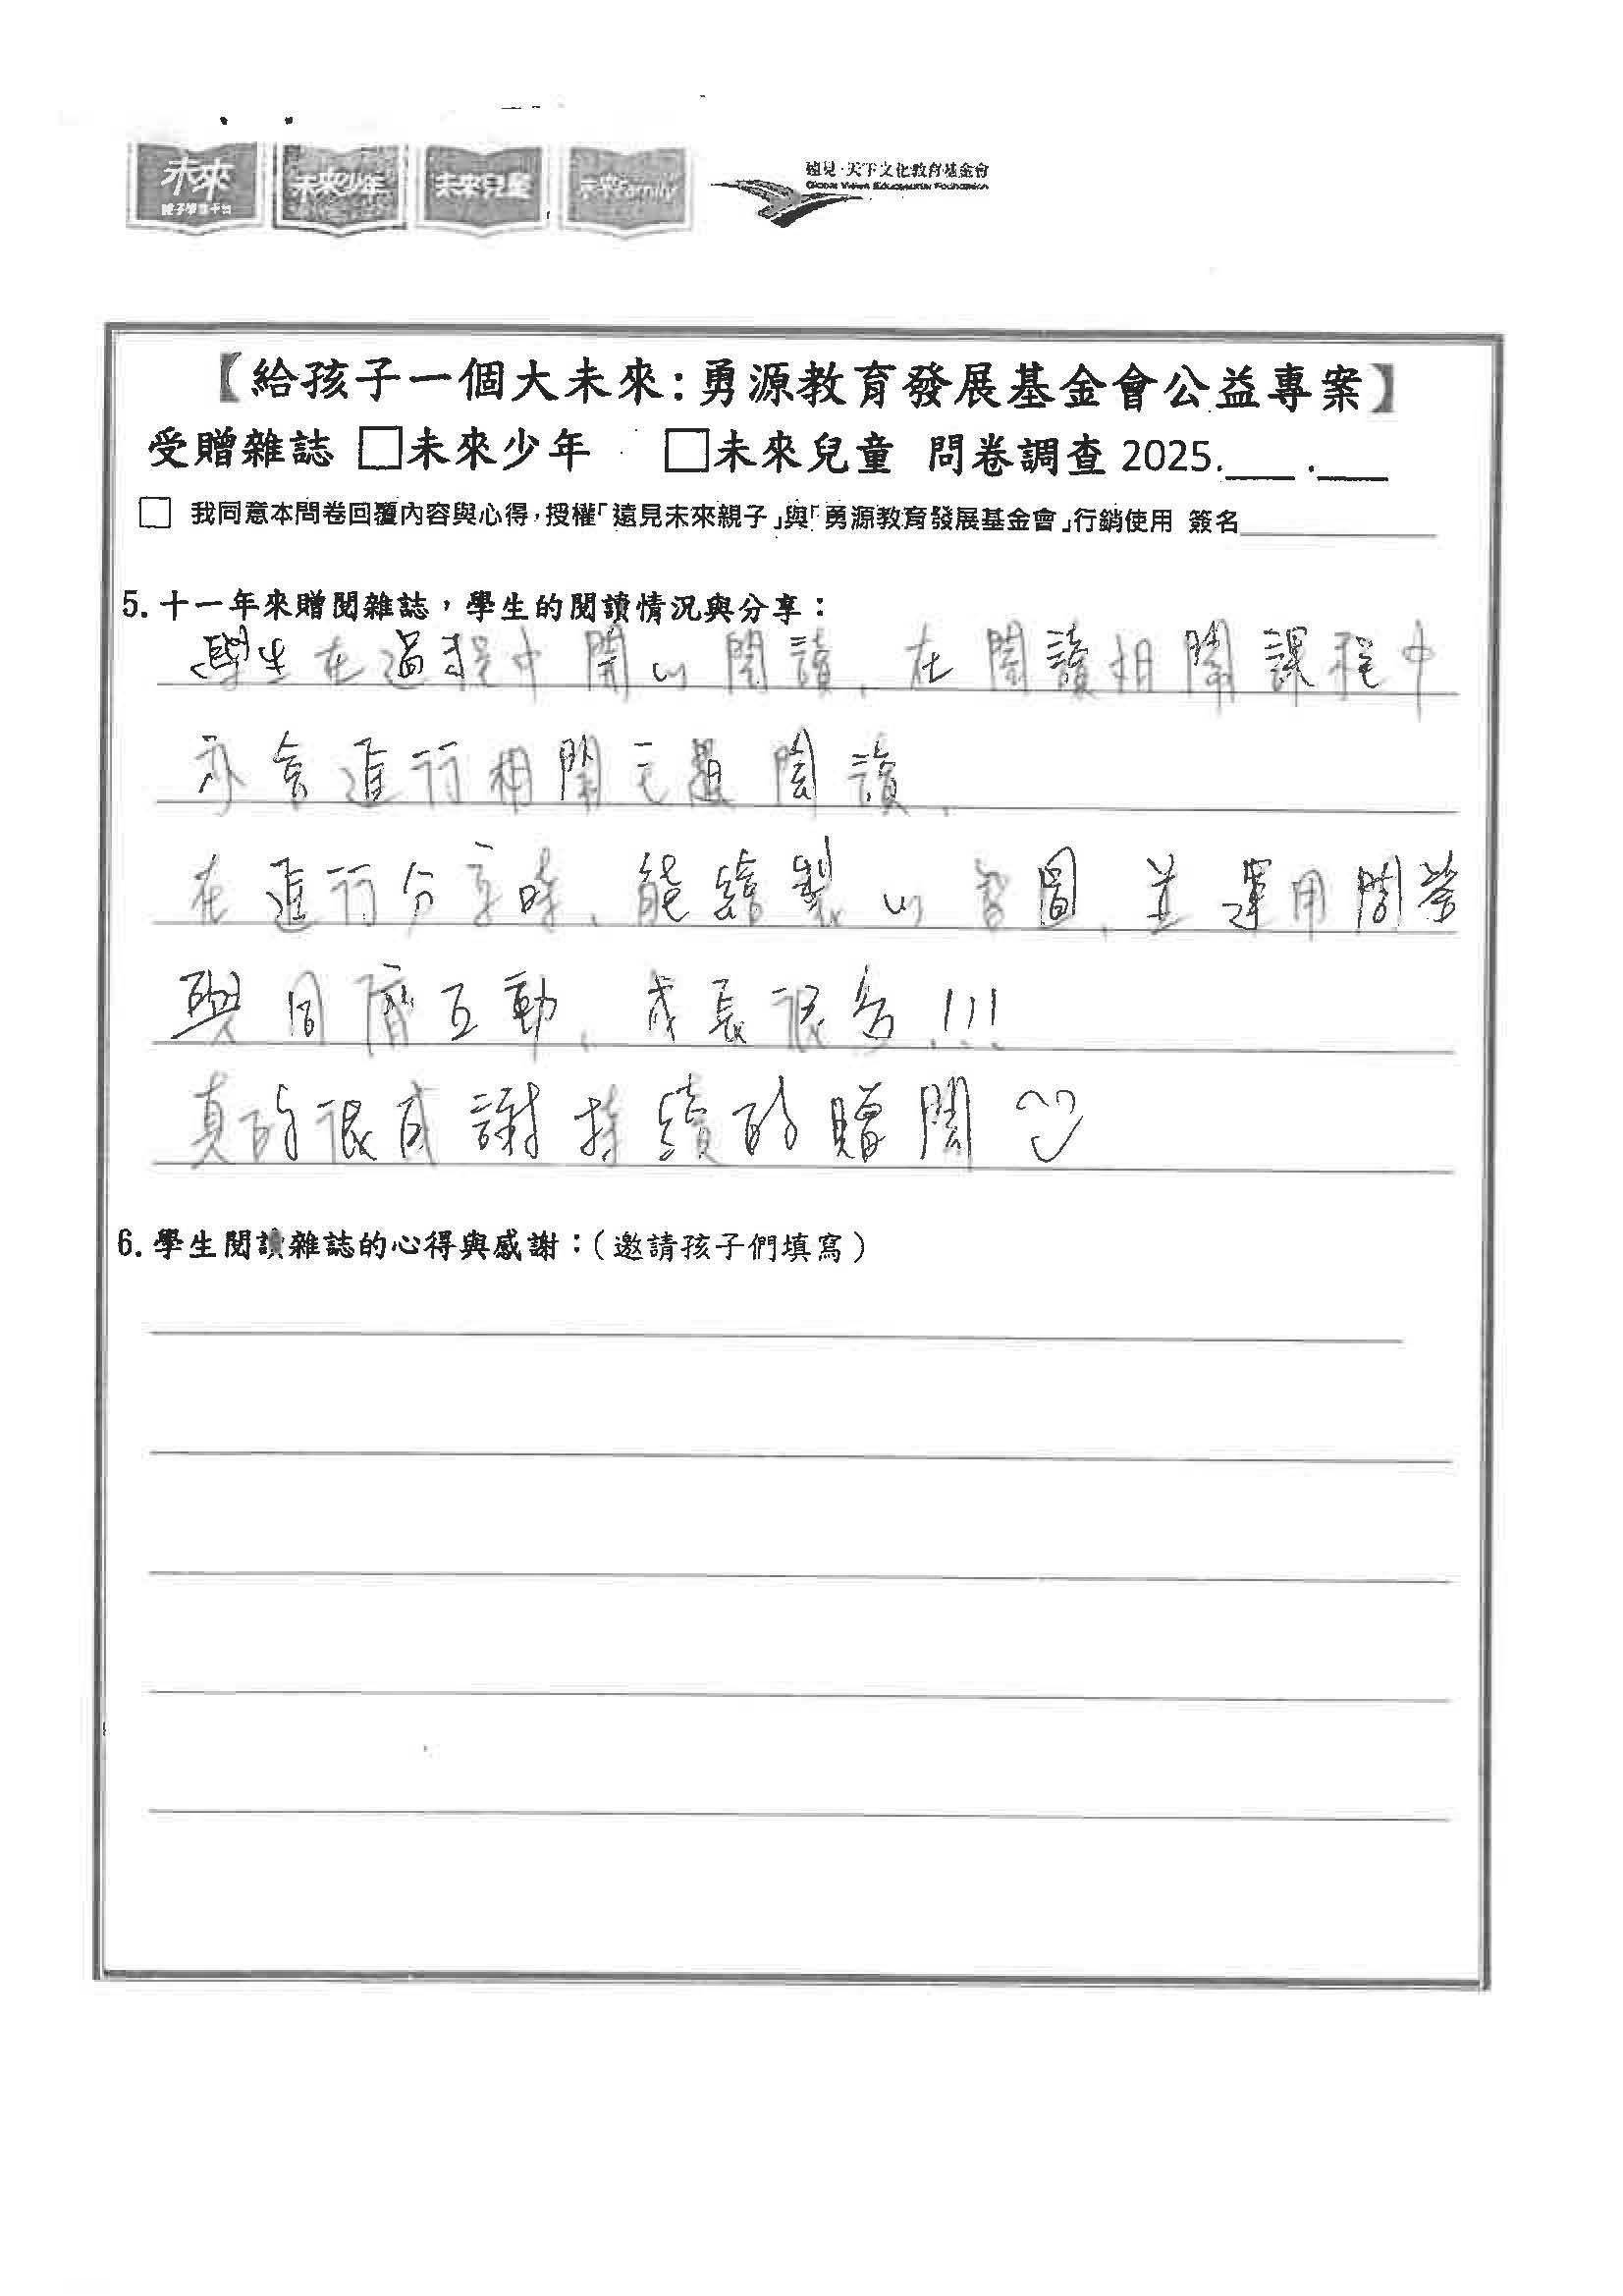 未來
親子學習平台
未來少年
未來兒童
未來Family
遠見‧天下文化教育基金會
Global Views Educational Foundation
【給孩子一個大未來:勇源教育發展基金會公益專案】
受贈雜誌 □未來少年 □未來兒童 問卷調查 2025.___.___
□ 我同意本問卷回覆內容與心得,授權「遠見未來親子」與「勇源教育發展基金會」行銷使用 簽名________
5. 十一年來贈閱雜誌,學生的閱讀情況與分享:
學生在過程中開心閱讀、在閱讀相關課程中
亦會進行相關主題閱讀、
在進行分享時、能繪製心智圖、並運用閱
與同儕互動、成長很多!!!
真的很感謝持續的贈閱
6. 學生閱讀雜誌的心得與感謝:(邀請孩子們填寫)